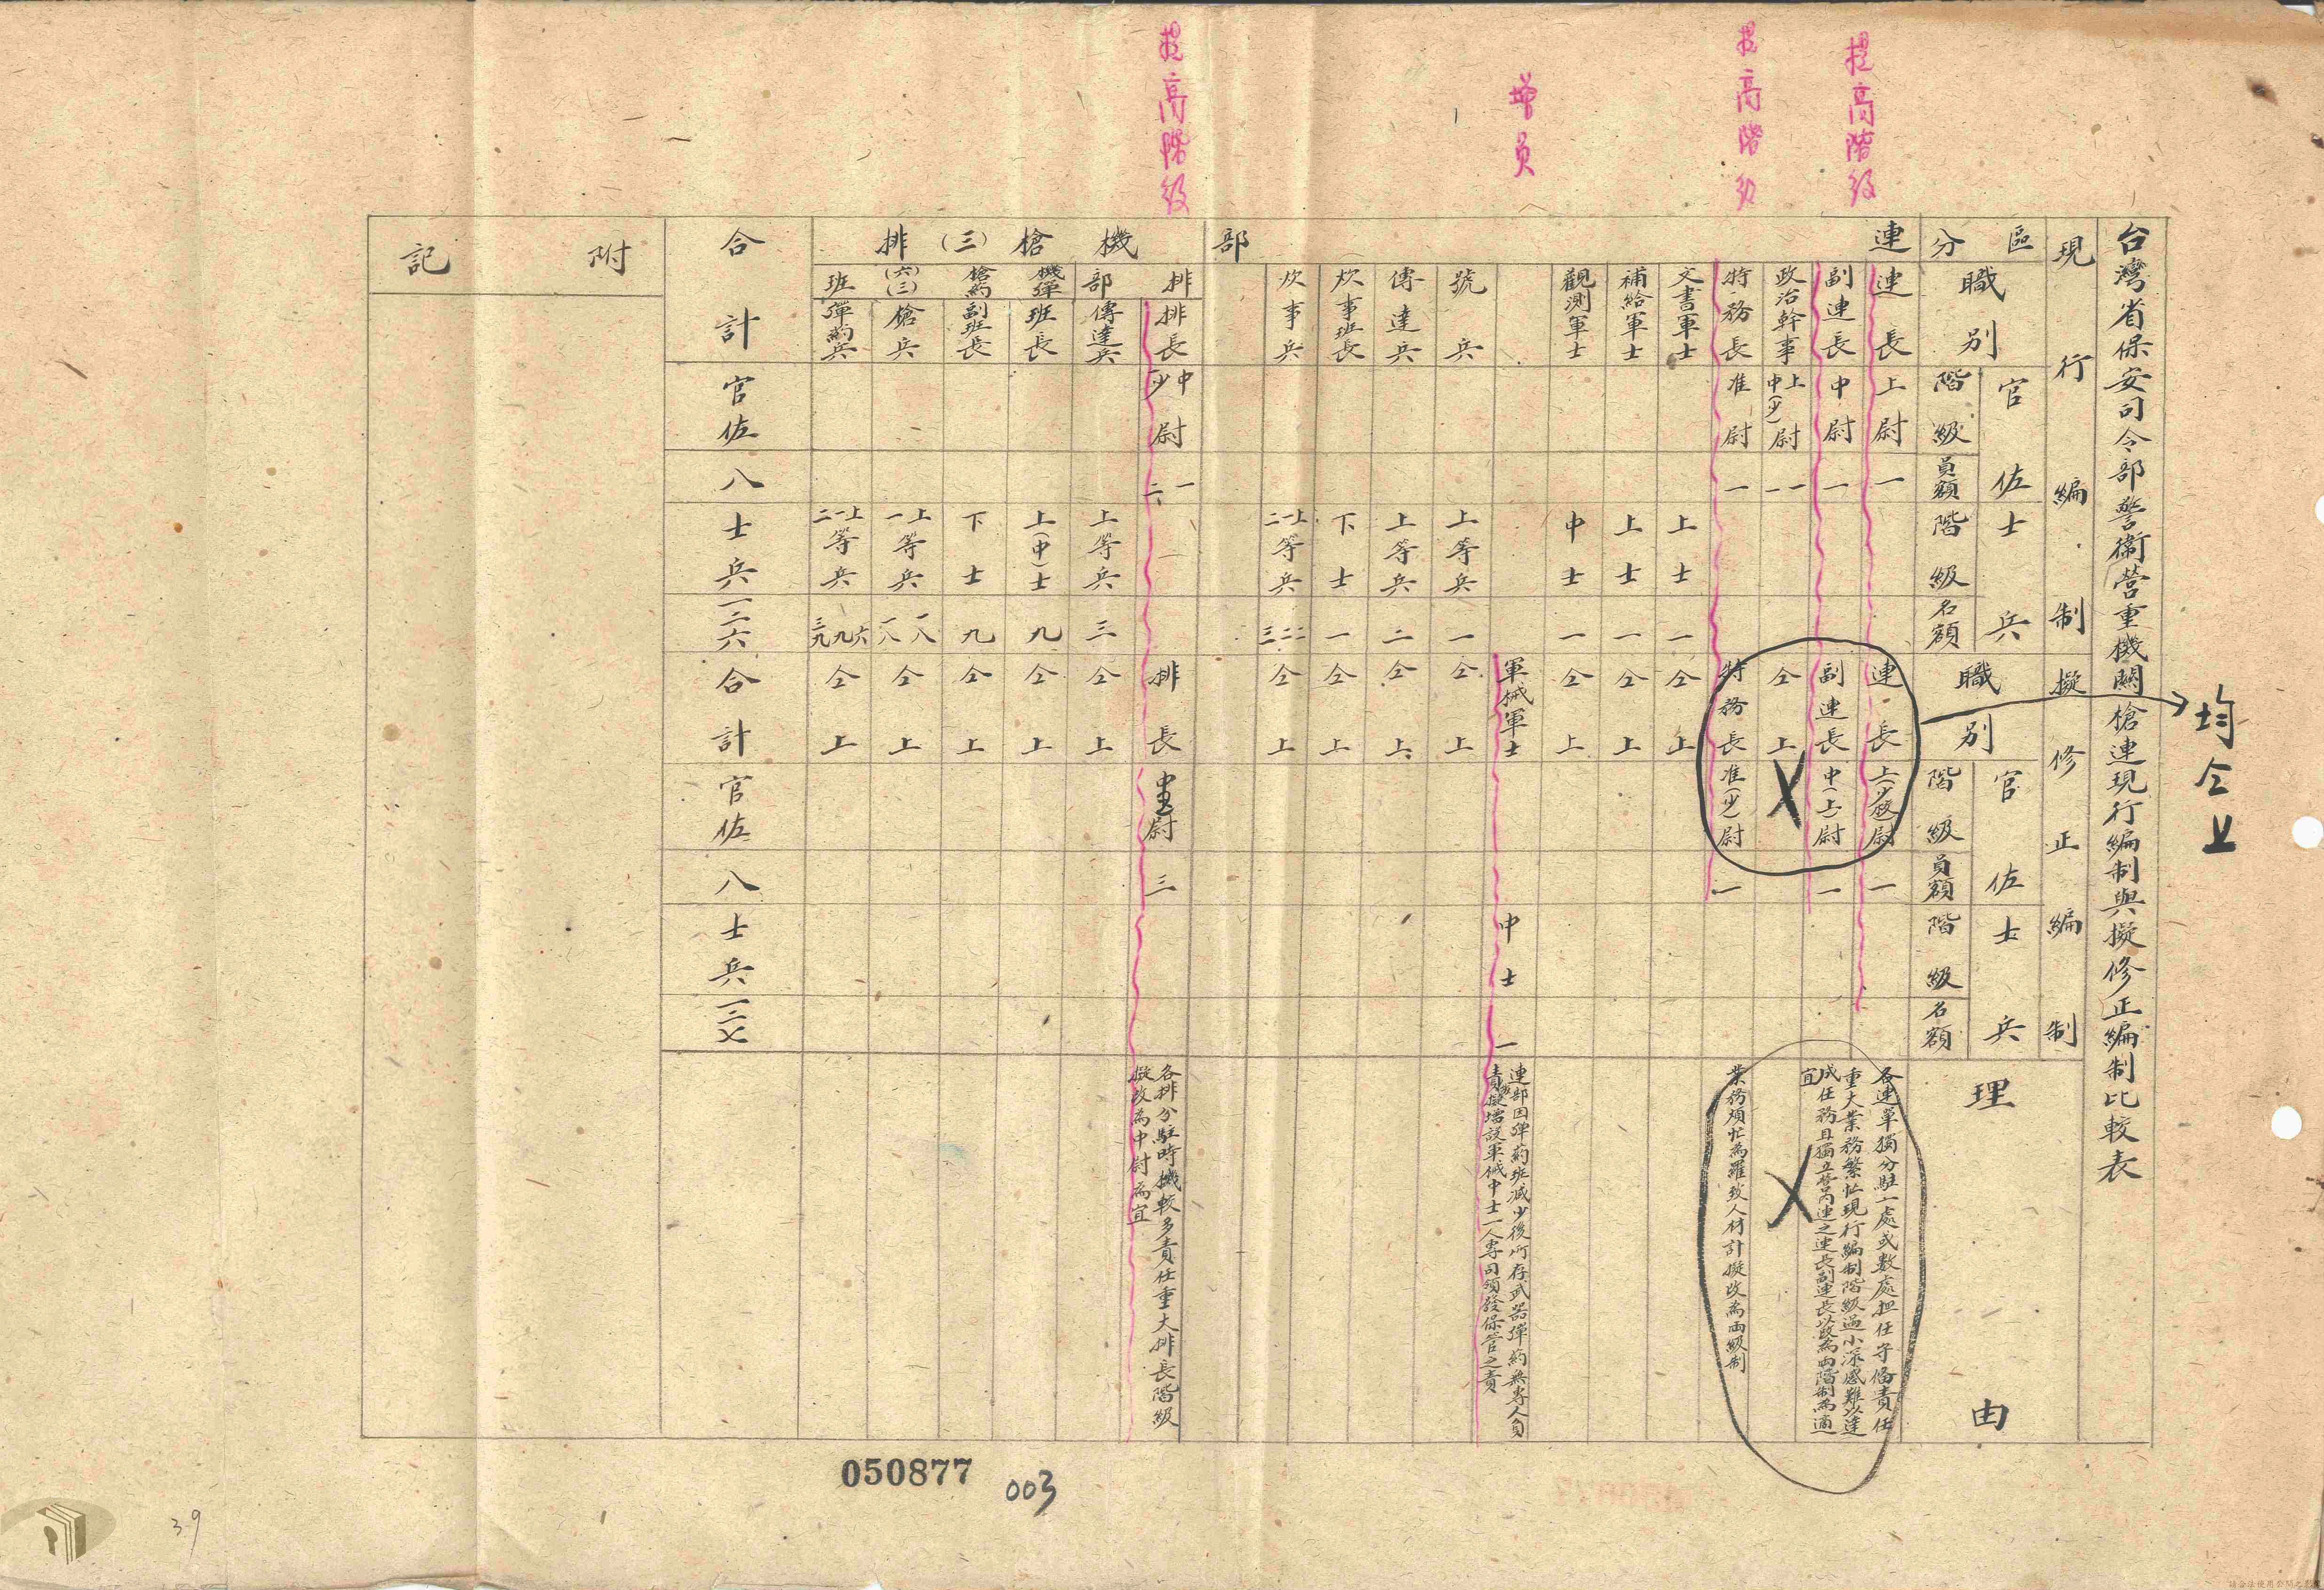 提高階級
提高階級
增員
提高階級
台灣省保安司令部警衛營重機關槍連現行編制與擬修正編制比較表
均仝上
現行編制
擬修正編制
區分
職別
官佐
階級
員額
士兵
階級
名額
職別
官佐
階級
員額
士兵
階級
名額
理由
連部
連長
上尉
一
連長
一
副連長
中尉
一
副連長
中(上)尉
一
各連單獨分駐一處或數處担任守備責任
重大業務繁忙現行編制階級過小深感難以達
成任務且獨立營

政治幹事
上中(少)尉
一一
仝上
特務長
准尉
一
特務長
准(少)尉
一
業務煩忙為羅致人材計擬改為兩級制
文書軍士
上士
一
仝上
補給軍士
上士
一
仝上
觀測軍士
中士
一
仝上
軍械軍士
中士
一
連部因彈葯班減少後所存武器彈葯無專人負
責擬增設軍械中士一人專司領發保管之責
號兵
上等兵
一
仝上
傳達兵
上等兵
二
仝上
炊事班長
下士
一
仝上
炊事兵
上一二等兵
二二三
仝上
機槍(三)排
排部
排長
中少尉
一二
排長
尉
三
各排分駐時機較多責任重大排長階級
擬改為中尉為宜
傳達兵
上等兵
三
仝上
機槍(六)班
彈葯(三)
班長
上(中)士
九
仝上
副班長
下士
九
仝上
槍兵
上一等兵
一八一八
仝上
彈葯兵
上一二等兵
六九三九
仝上
合計
官佐
八
士兵
一二六
合計
官佐
八
士兵
一二七
附記
050877
003
39